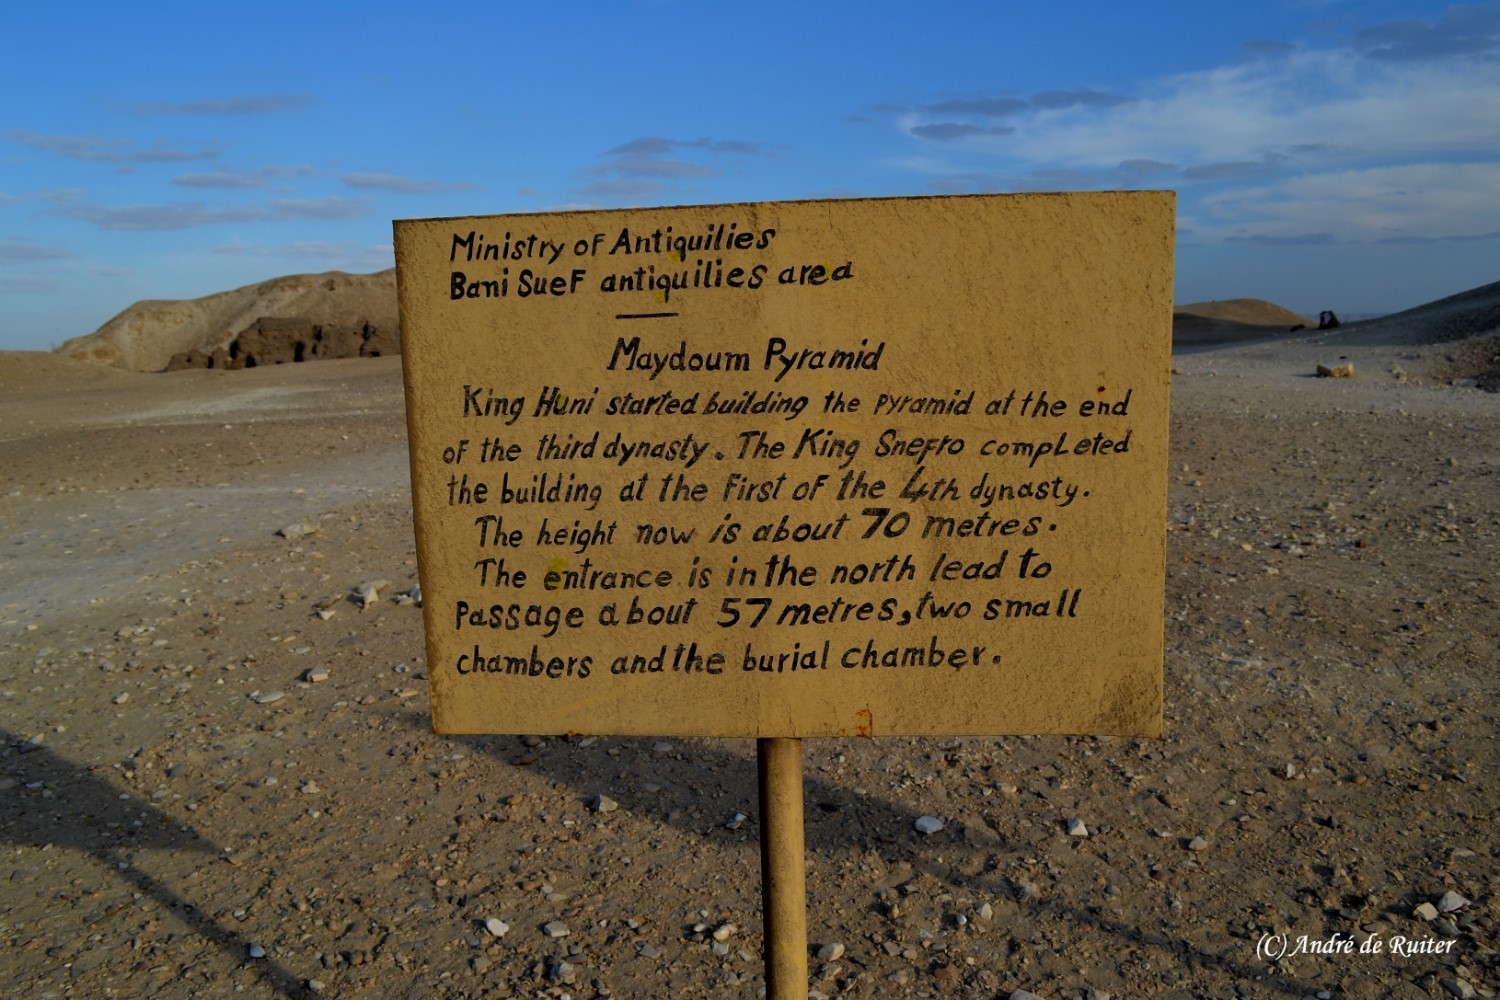 Ministry of Antiquilies
Bani Suef antiquilies area
Maydoum Pyramid
King Huni started building the pyramid at the end
of the third dynasty. The King Snefro completed
the building at the First of the 4th dynasty.
The height now is about 70 metres.
The entrance is in the north lead to
Passage about 57 metres, two small
chambers and the burial chamber.
(C) André de Ruiter